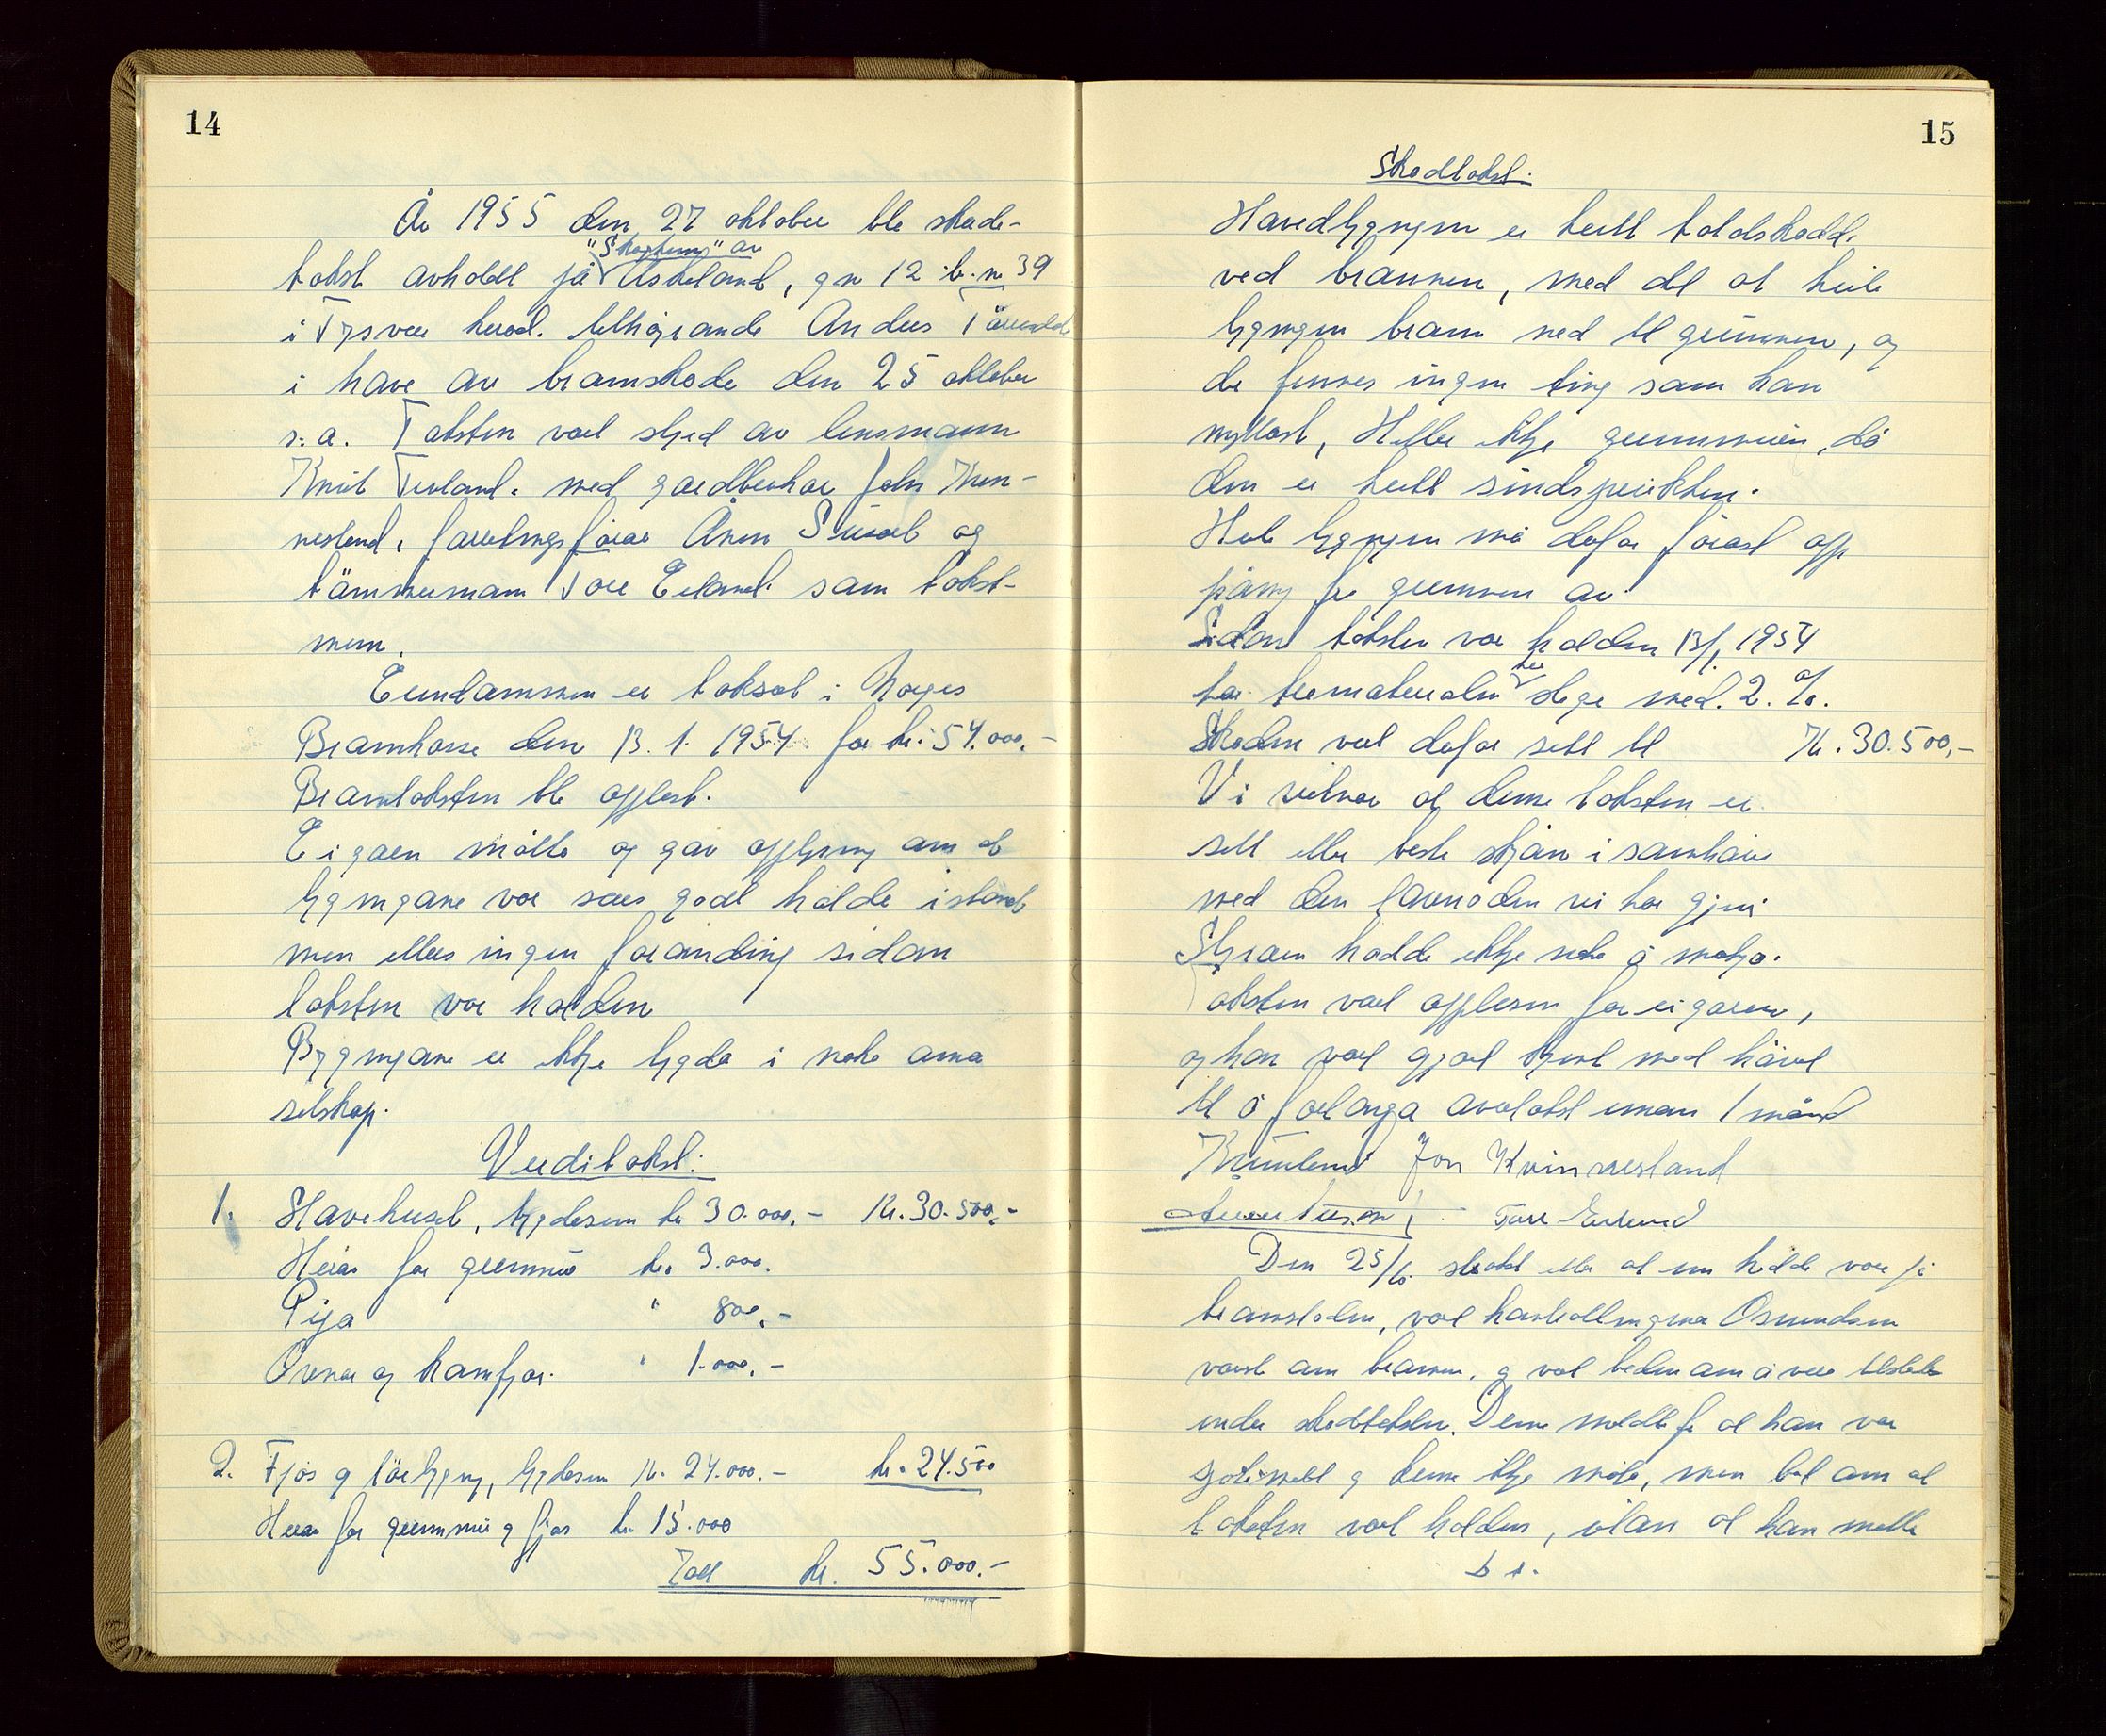 14
År 1955 den 27 oktober ble skade-
"Skogheim" av
takst avholdt på Askeland, g nr 12 br. nr 39
i Tysvær herad. tilhøyrande Anders
i have av brannskade den 25 oktober
s. a. Taksten vart skjed av lensmann
Knut Tveland. med gardbrukar John Kvin-
nesland, forretningsførar Arne og
tømmermann Tore Eiland. som takst-
menn.
Eiendommen er taksert i Norges
Brannkasse den 13. 1. 1954 for kr. 54.000.-
Branntaksten ble opplest.
Eigaren møtte og gav opplysning om at
bygningane var godt halde istand
men ellers ingen forandring sidan
taksten var halden
Bygningane er ikkje trygda i noko anna
selskap.
Verditakst:
1. Havehuset, trygdesum kr 30.000.- Kr. 30.500.-
Herav for grunnmur kr. 3.000.
Pipa " 800.-
Ovnar og kamfyr. " 1.000.-
2. Fjøs og løebygning, trygdesum kr. 24.000.- kr. 24.500
Herav for grunnmur og fjøs kr. 15.000
Tall kr. 55.000.-
15
Skadtakst.
Havedbygnyngen er heilt totalskadd.
ved brannen, med det at heile
bygningen brann ned til grunnen, og
de finnes ingen ting som kan
nyttast, Heller ikkje grunnmuren, då
den er heilt sundsprukken.
Heile bygnyngen må derfor førast opp
påny fra grunnen av.
Sidan taksten var halden 13/1 1954
har trematerialen her stege med. 2. %.
Skaden vart derfor sett til Kr. 30.500,-
Vi vitnar at denne taksten er
sett etter beste skjøn i samhøve
med den lovnaden vi har gjevi
Styraren hadde ikkje noko å merkja.
Taksten vart opplesen for eigaren,
og han vart gjort kjent med høvet
til å forlanga overtakst innan 1 månd
Jon Kvinnesland
Tore Eiland
Den 25/10. straks etter at en hadde vore på
brannstaden, vart Osmundsen
varslet om brannen, og vart beden om å vera tilstede
under skadetaksten. Denne meldte fra at han var
og kunne ikkje møta, men bad om at
taksten vart halden, utan at han møtte